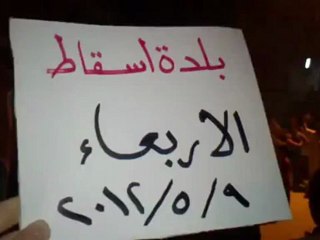 بلدة اسقاط
الاربعاء
٢٠١٢/٥/٩